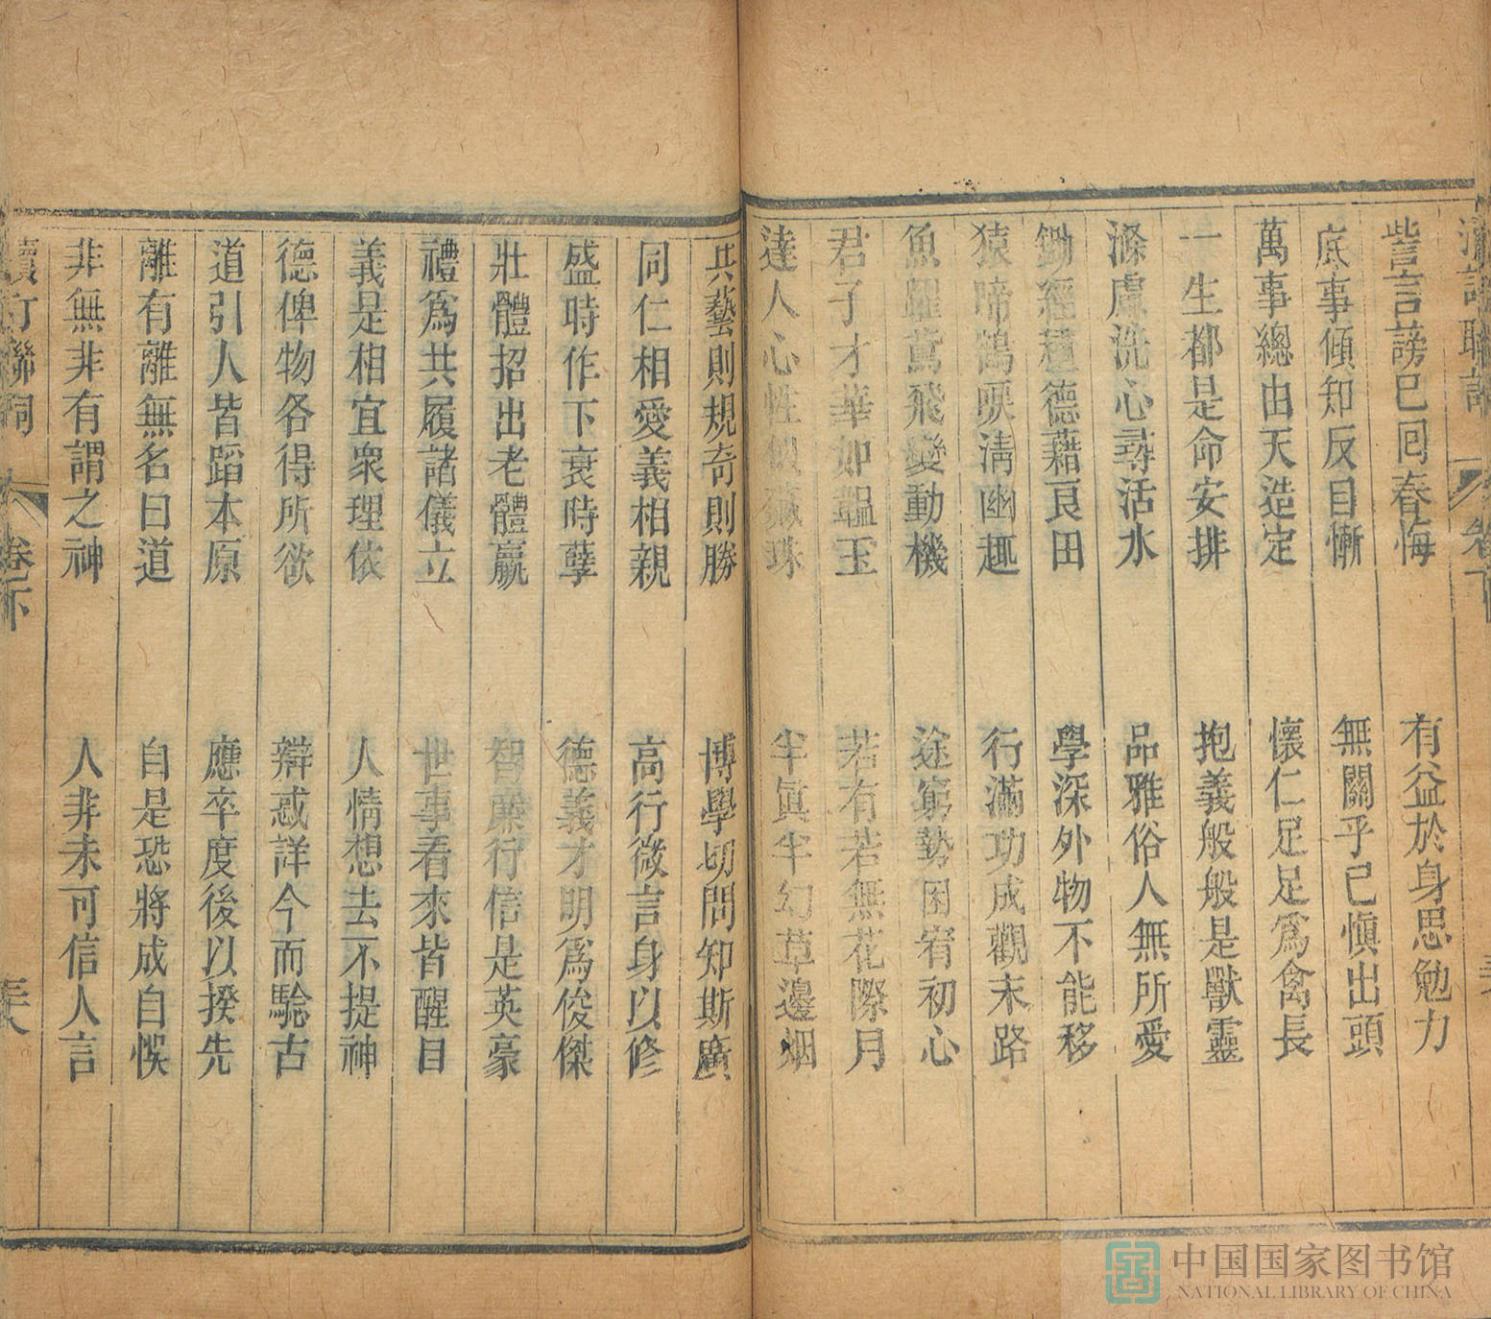 訾言謗已囘春悔 有益於身思勉力
底事傾知反目慚 無關乎己愼出頭
萬事總由天造定 懷仁足足爲禽長
一生都是命安排 抱義般般是獸靈
滌慮洗心尋活水 品雅俗人無所愛
鋤經種德藉良田 學深外物不能移
猿啼鶴唳淸幽趣 行滿功成觀末路
魚躍鳶飛變動機 途窮勢困宥初心
君子才華如韞玉 若有若無花際月
達人心性似藏珠 半眞半幻草邊烟
共藝則規奇則勝 博學切問知斯廣
同仁相愛義相親 高行微言身以修
盛時作下衰時孽 德義才明爲俊傑
壯體招出老體羸 智廉行信是英豪
禮爲共履諸儀立 世事看來皆醒目
義是相宜衆理依 人情想去不提神
德俾物各得所欲 辯惑詳今而驗古
道引人皆蹈本原 應卒度後以揆先
離有離無名曰道 自是恐將成自悞
非無非有謂之神 人非未可信人言
續訂聯詞 卷下
中国国家图书馆
NATIONAL LIBRARY OF CHINA